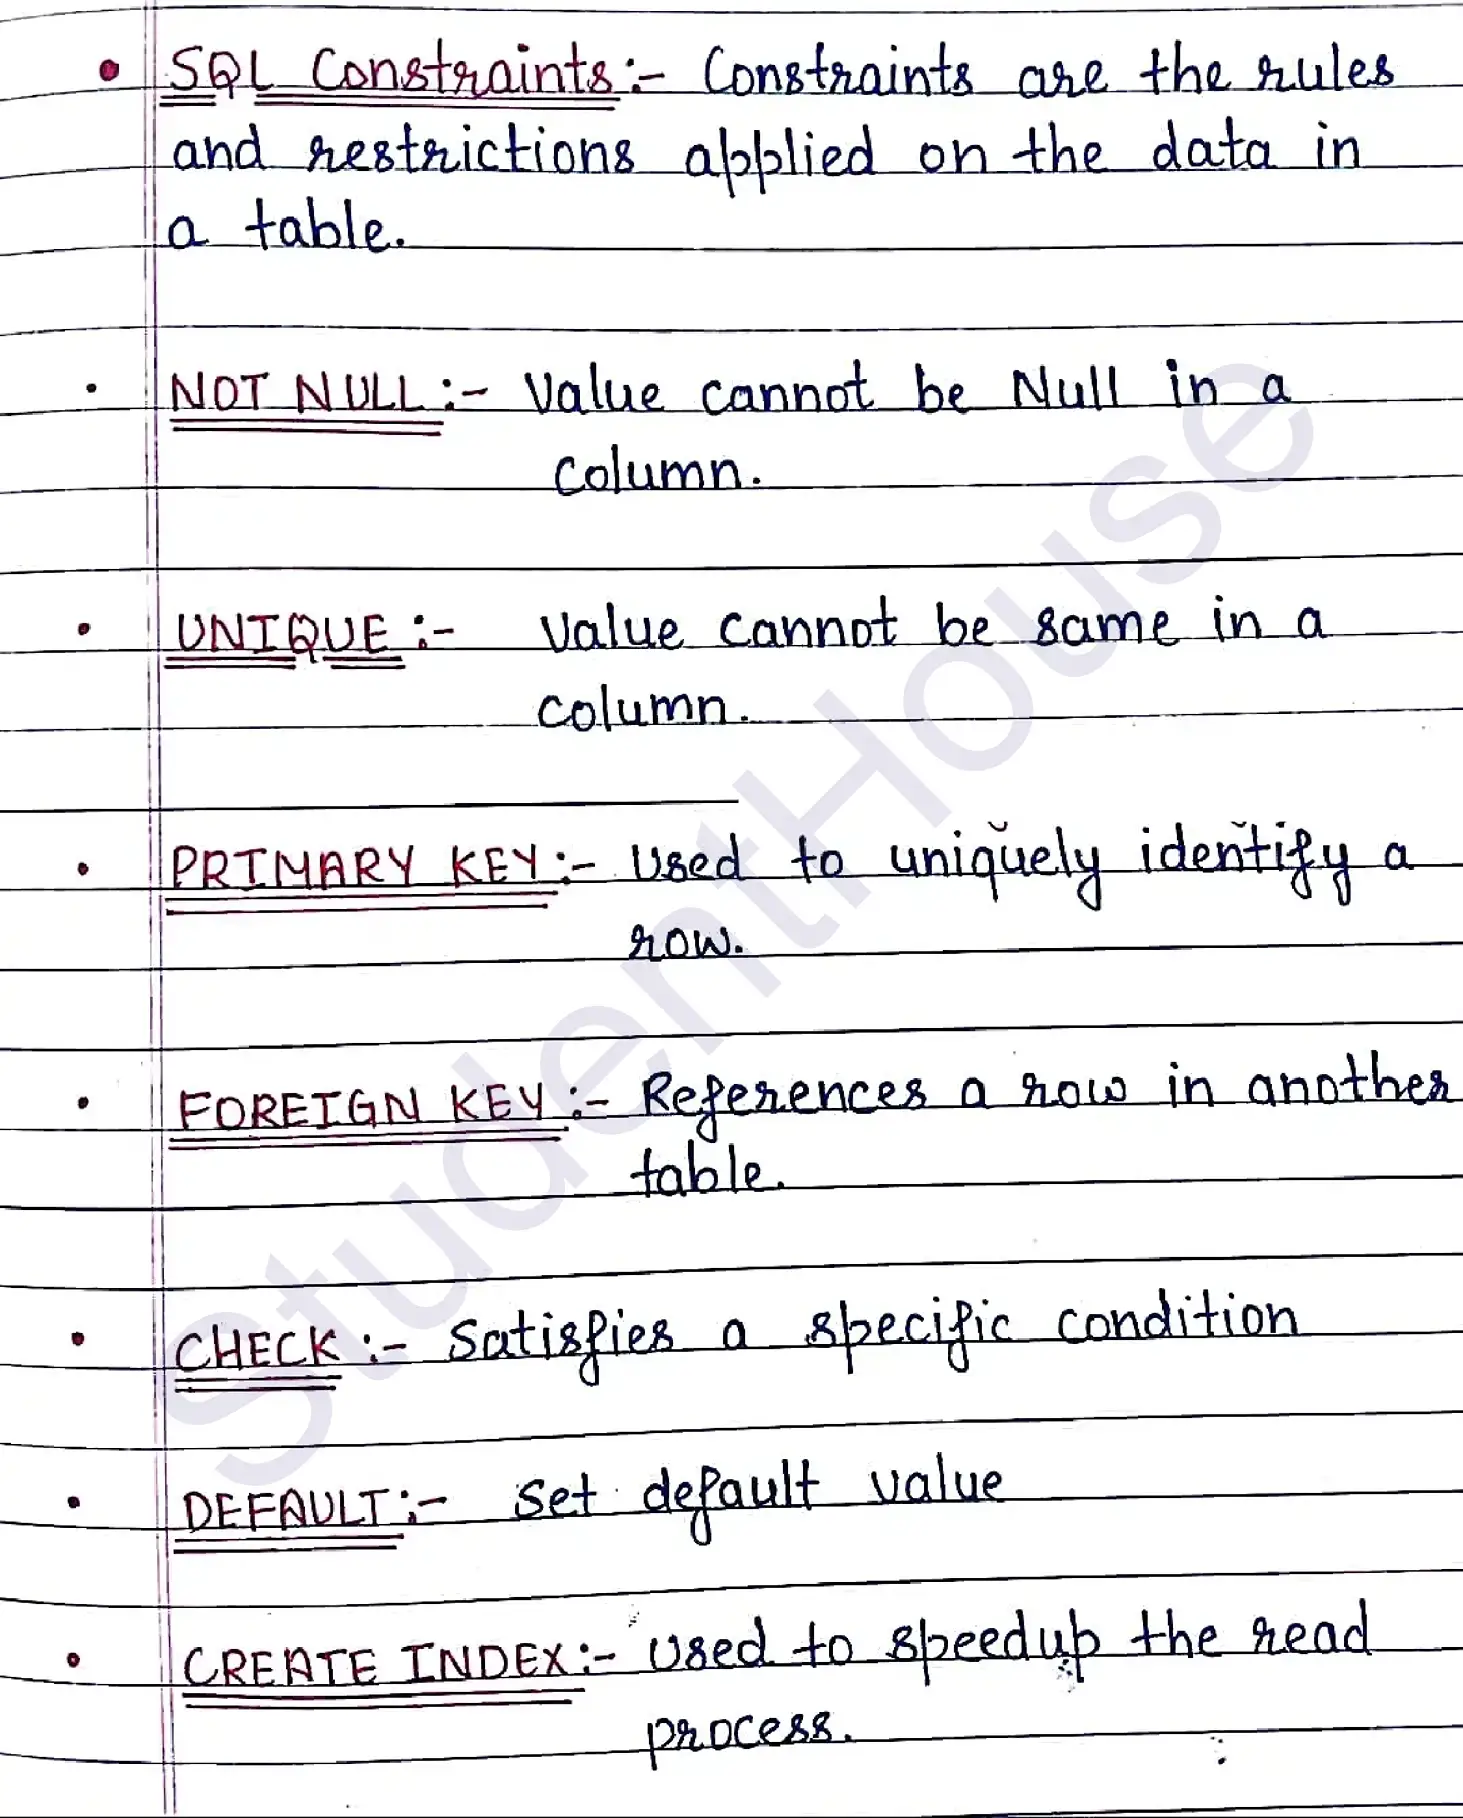 • SQL Constraints :- Constraints are the rules
and restrictions applied on the data in
a table.
• NOT NULL :- Value cannot be Null in a
column.
• UNIQUE :- Value cannot be same in a
column.
• PRIMARY KEY :- Used to uniquely identify a
row.
• FOREIGN KEY :- References a row in another
table.
• CHECK :- Satisfies a specific condition
• DEFAULT :- Set default value
• CREATE INDEX :- Used to speedup the read
process.
StudentHouse